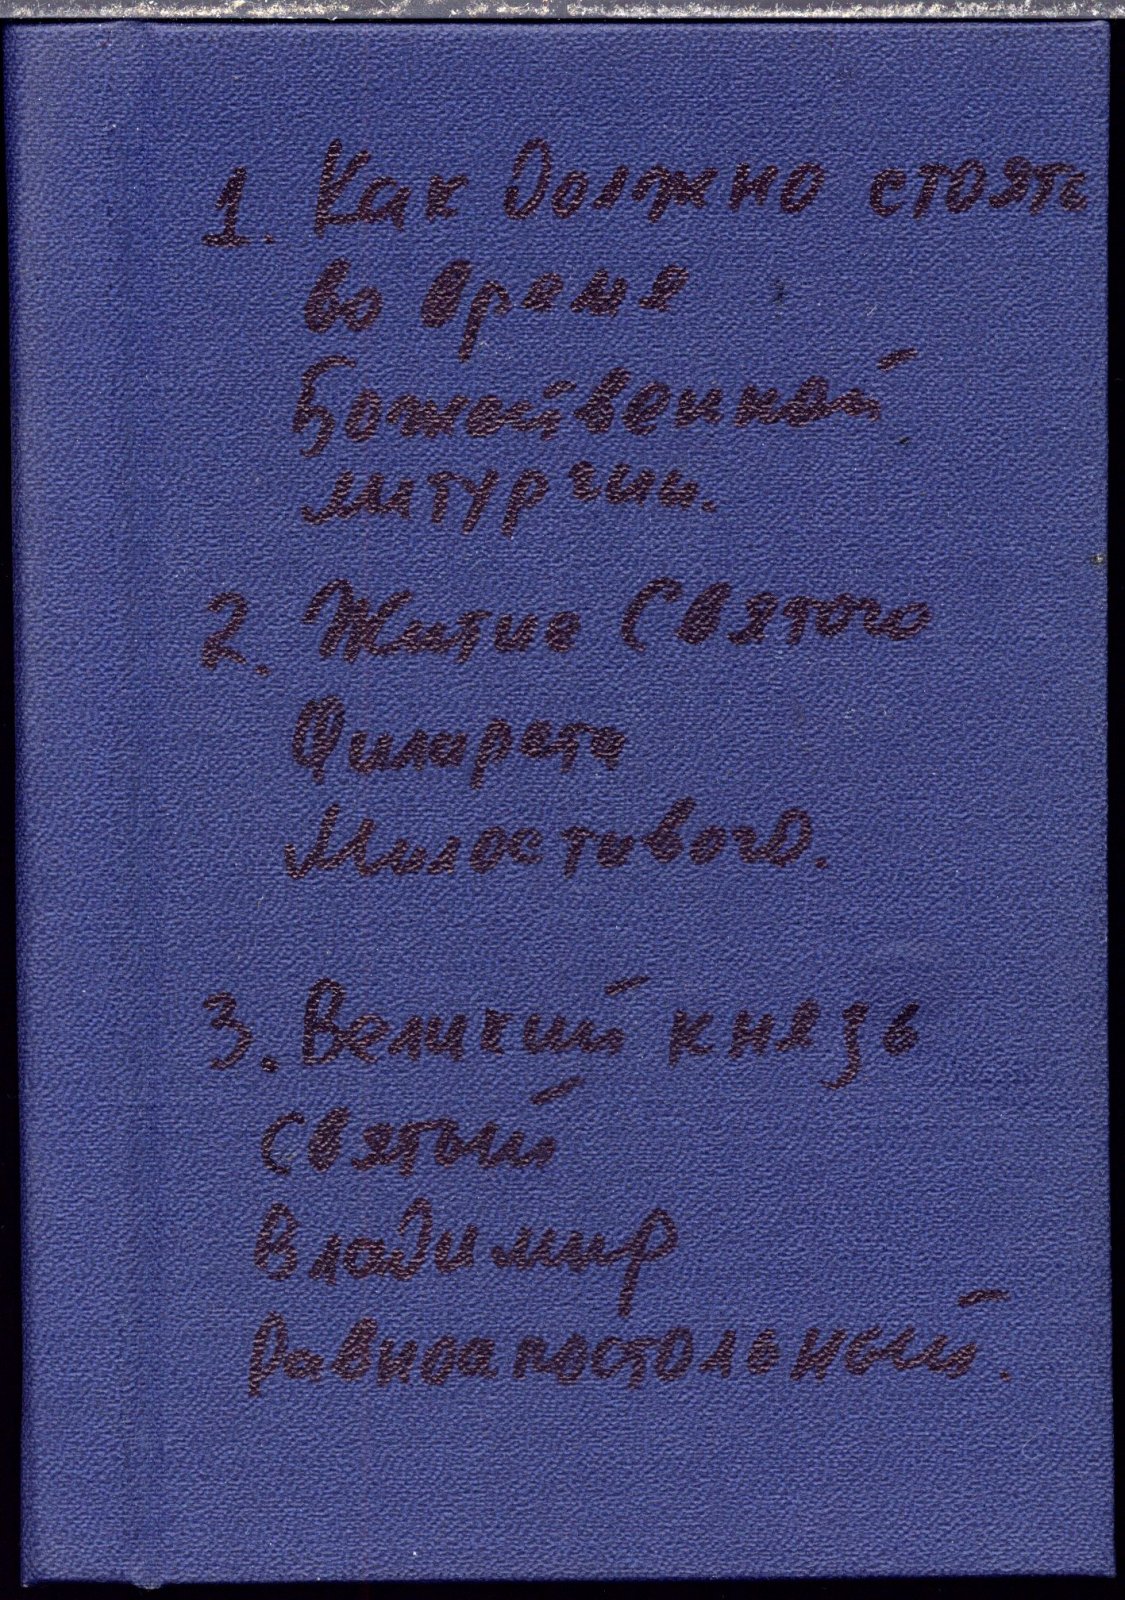 1. Как должно стоять
во время
Божественной
литургии.
2. Житие Святого
Филарета
Милостивого.
3. Великий князь
святый
Владимир
равноапостольный.